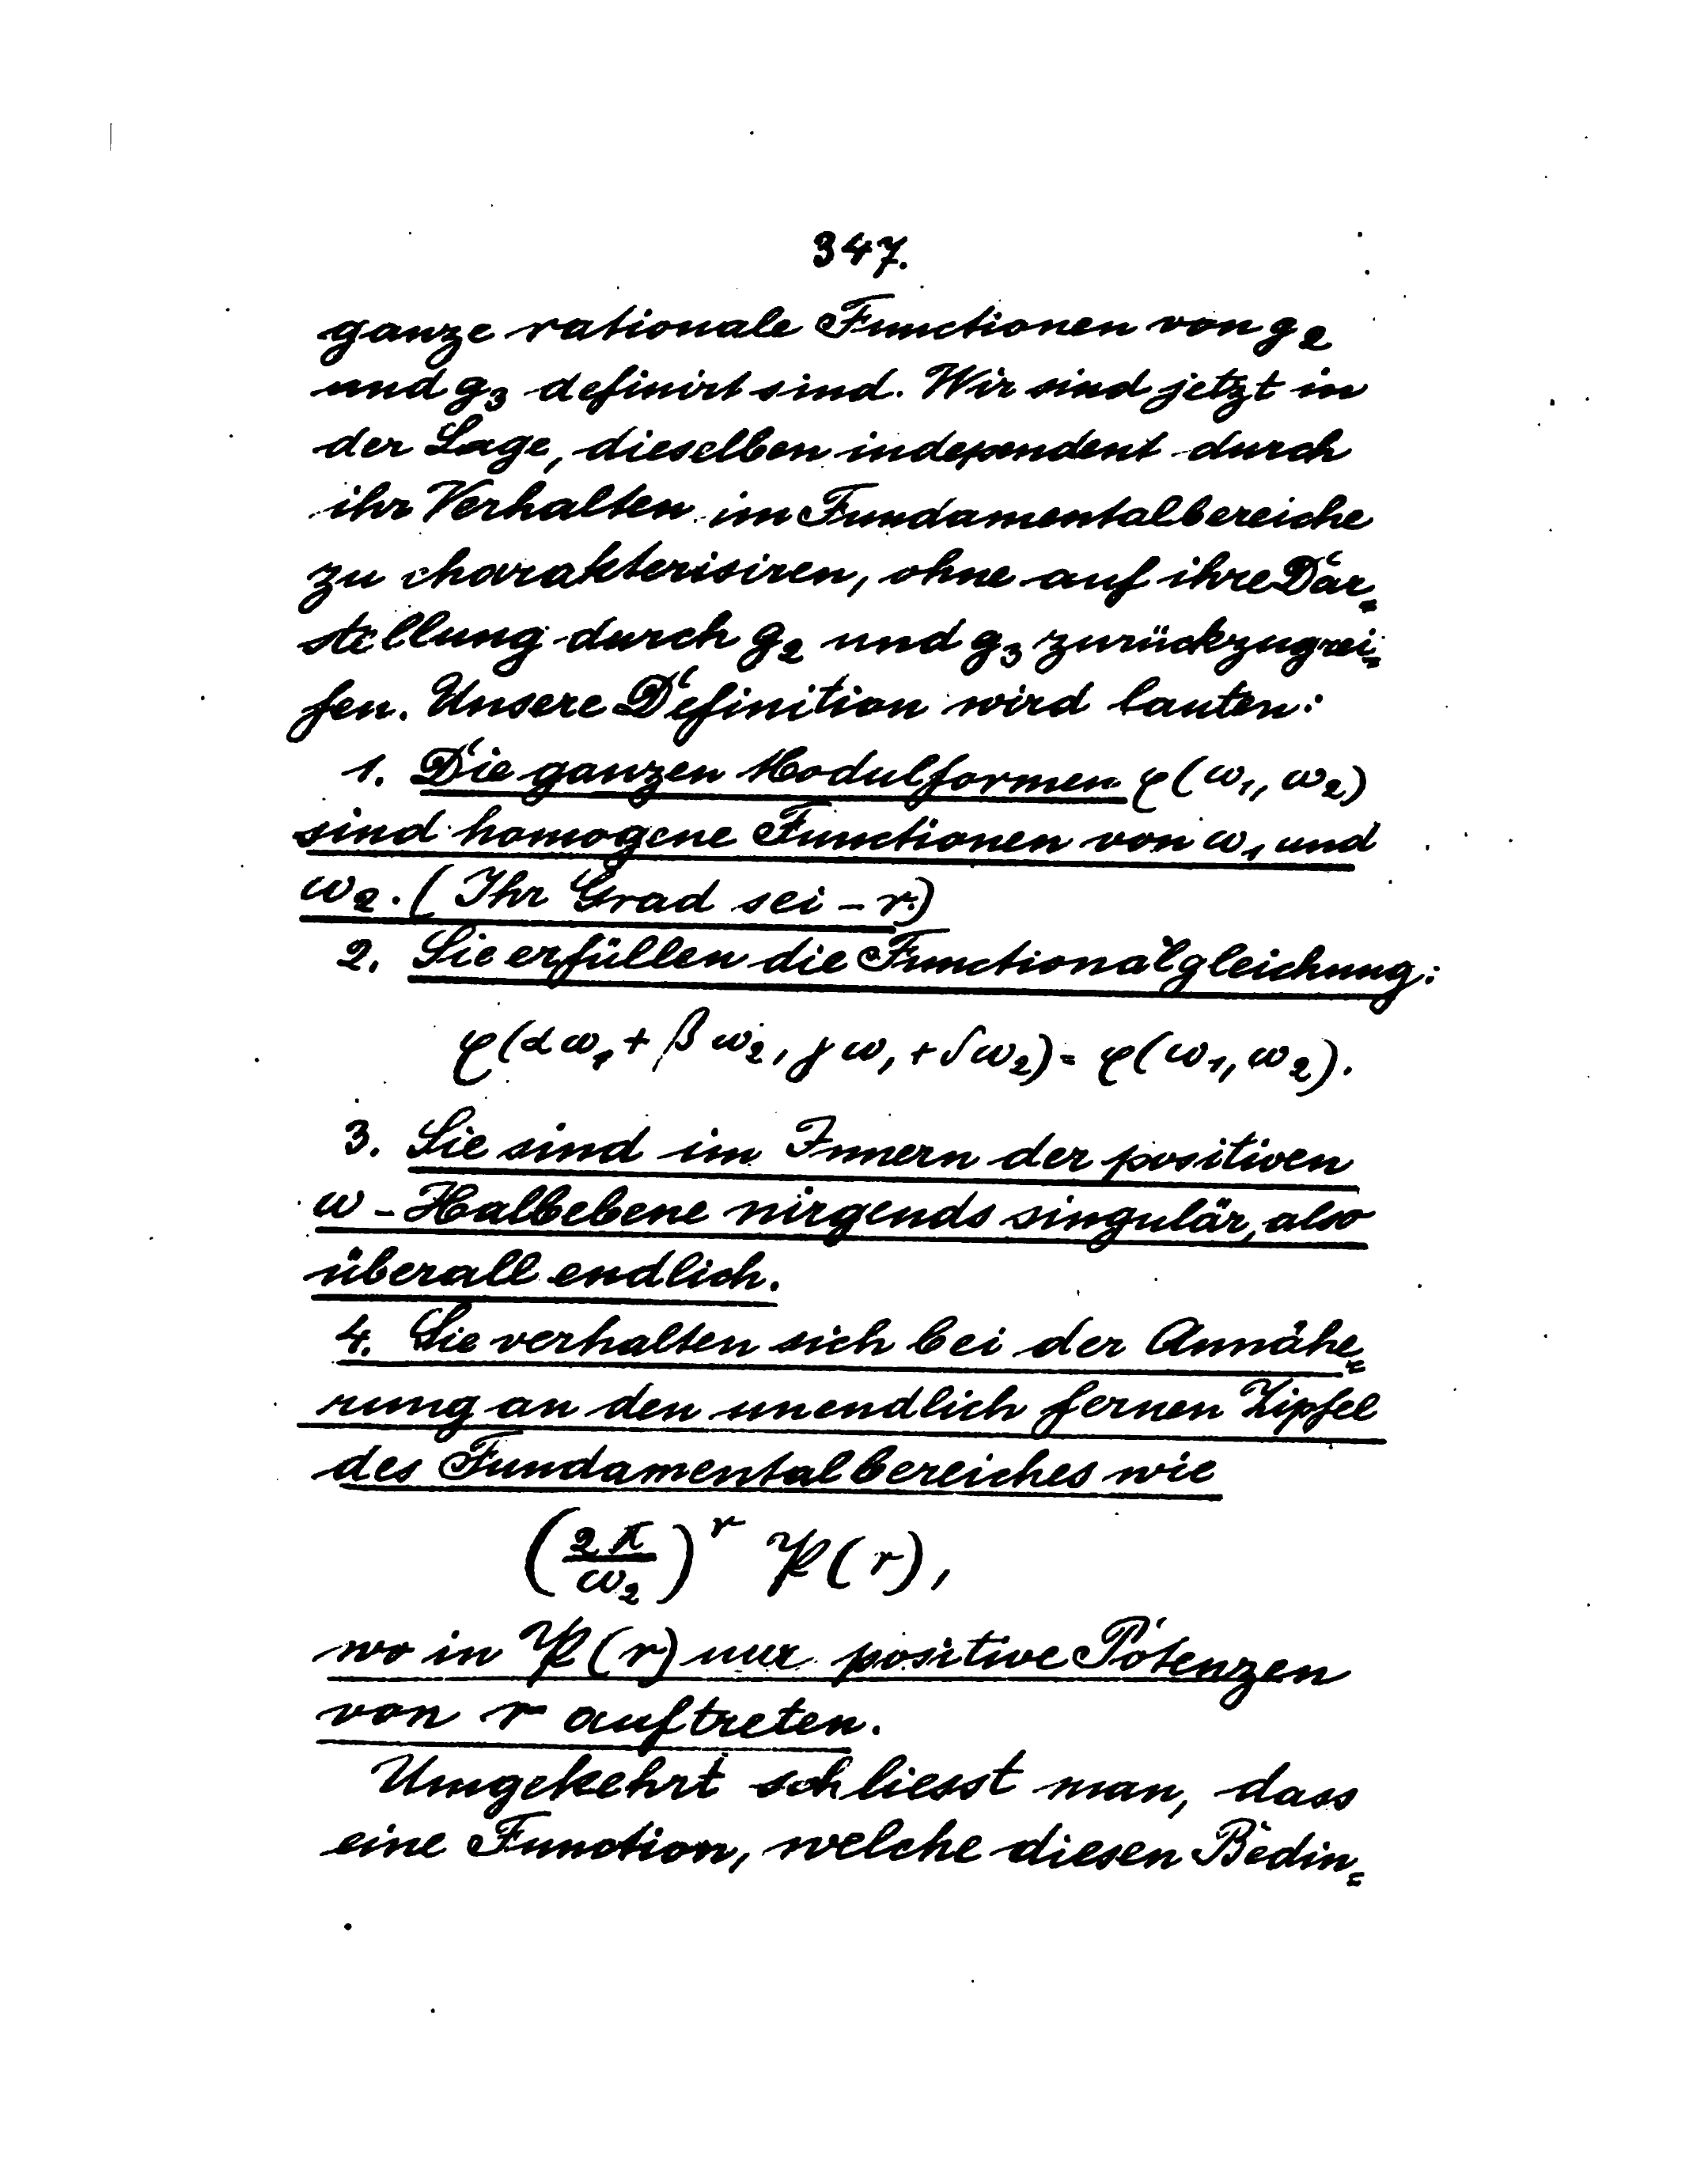 347.
ganze rationale Functionen von g₂
und g₃ definirt sind. Wir sind jetzt in
der Lage, dieselben independent durch
ihr Verhalten im Fundamentalbereiche
zu charakterisiren, ohne auf ihre Dar=
stellung durch g₂ und g₃ zurückzugrei=
fen. Unsere Definition wird lauten:
1. Die ganzen Modulformen φ(ω₁, ω₂)
sind homogene Functionen von ω₁ und
ω₂. (Ihr Grad sei – r.)
2. Sie erfüllen die Functionalgleichung:
φ(αω₁ + βω₂, γω₁ + δω₂) = φ(ω₁, ω₂).
3. Sie sind im Innern der positiven
ω – Halbebene nirgends singulär, also
überall endlich.
4. Sie verhalten sich bei der Annähe=
rung an den unendlich fernen Zipfel
des Fundamentalbereiches wie
(2π/ω₂)^r 𝔓(r),
wo in 𝔓(r) nur positive Potenzen
von r auftreten.
Umgekehrt schliesst man, dass
eine Function, welche diesen Bedin=